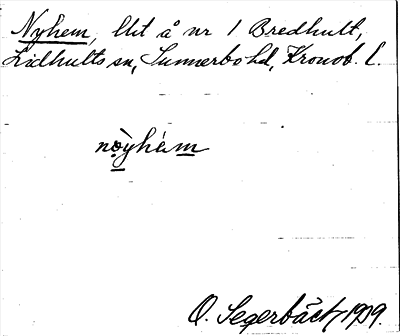 Nyhem, llit å nr 1 Bredhult,
Lidhults sn, Sunnerbo hd, Kronob. l.
nòyhém
O. Segerbäck, 1919.